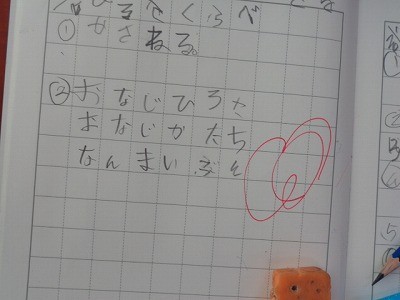 ひろさくらべ
①かさねる。
②おなじひろさ
おなじかたち
なんまいぶん